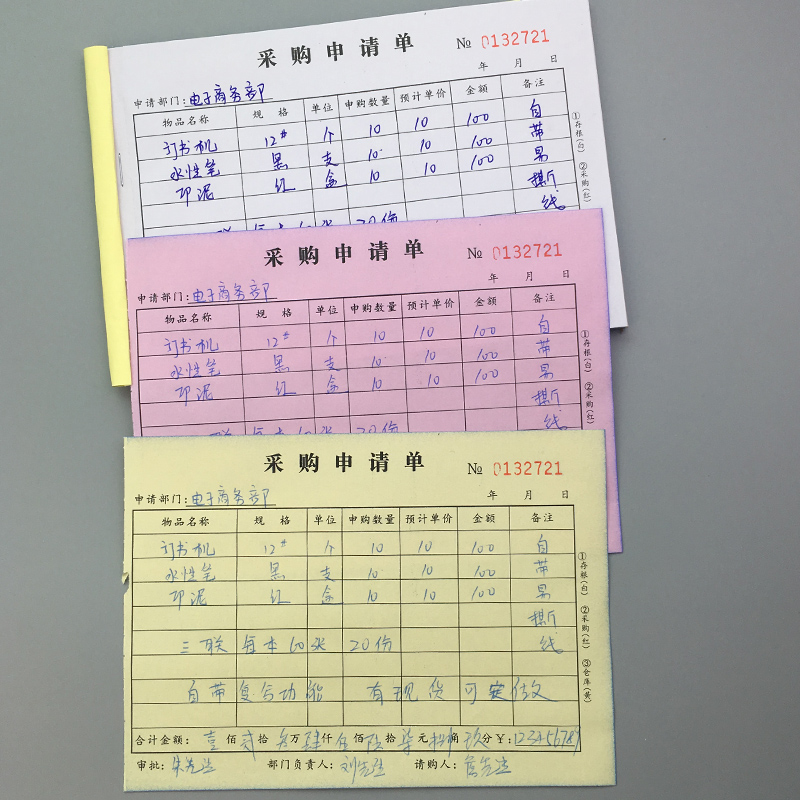 采购申请单 № 0132721
年 月 日
申请部门:电子商务部
物品名称 规格 单位 申购数量 预计单价 金额 备注
订书机 12# 个 10 10 100 自
水性笔 黑 支 10 10 100 带
印泥 红 盒 10 10 100 易
撕
线
①存根(白) ②采购(红)
采购申请单 № 0132721
年 月 日
申请部门:电子商务部
物品名称 规格 单位 申购数量 预计单价 金额 备注
订书机 12# 个 10 10 100 自
水性笔 黑 支 10 10 100 带
印泥 红 盒 10 10 100 易
撕
线
①存根(白) ②采购(红)
采购申请单 № 0132721
年 月 日
申请部门:电子商务部
物品名称 规格 单位 申购数量 预计单价 金额 备注
订书机 12# 个 10 10 100 自
水性笔 黑 支 10 10 100 带
印泥 红 盒 10 10 100 易
撕
三联 每本60张 20份 线
自带复写功能 有现货可定做
合计金额: 壹佰贰拾叁万肆仟伍佰陆拾柒元捌角玖分 ¥:123456789
审批: 部门负责人:刘先生 请购人:
①存根(白) ②采购(红) ③仓库(黄)